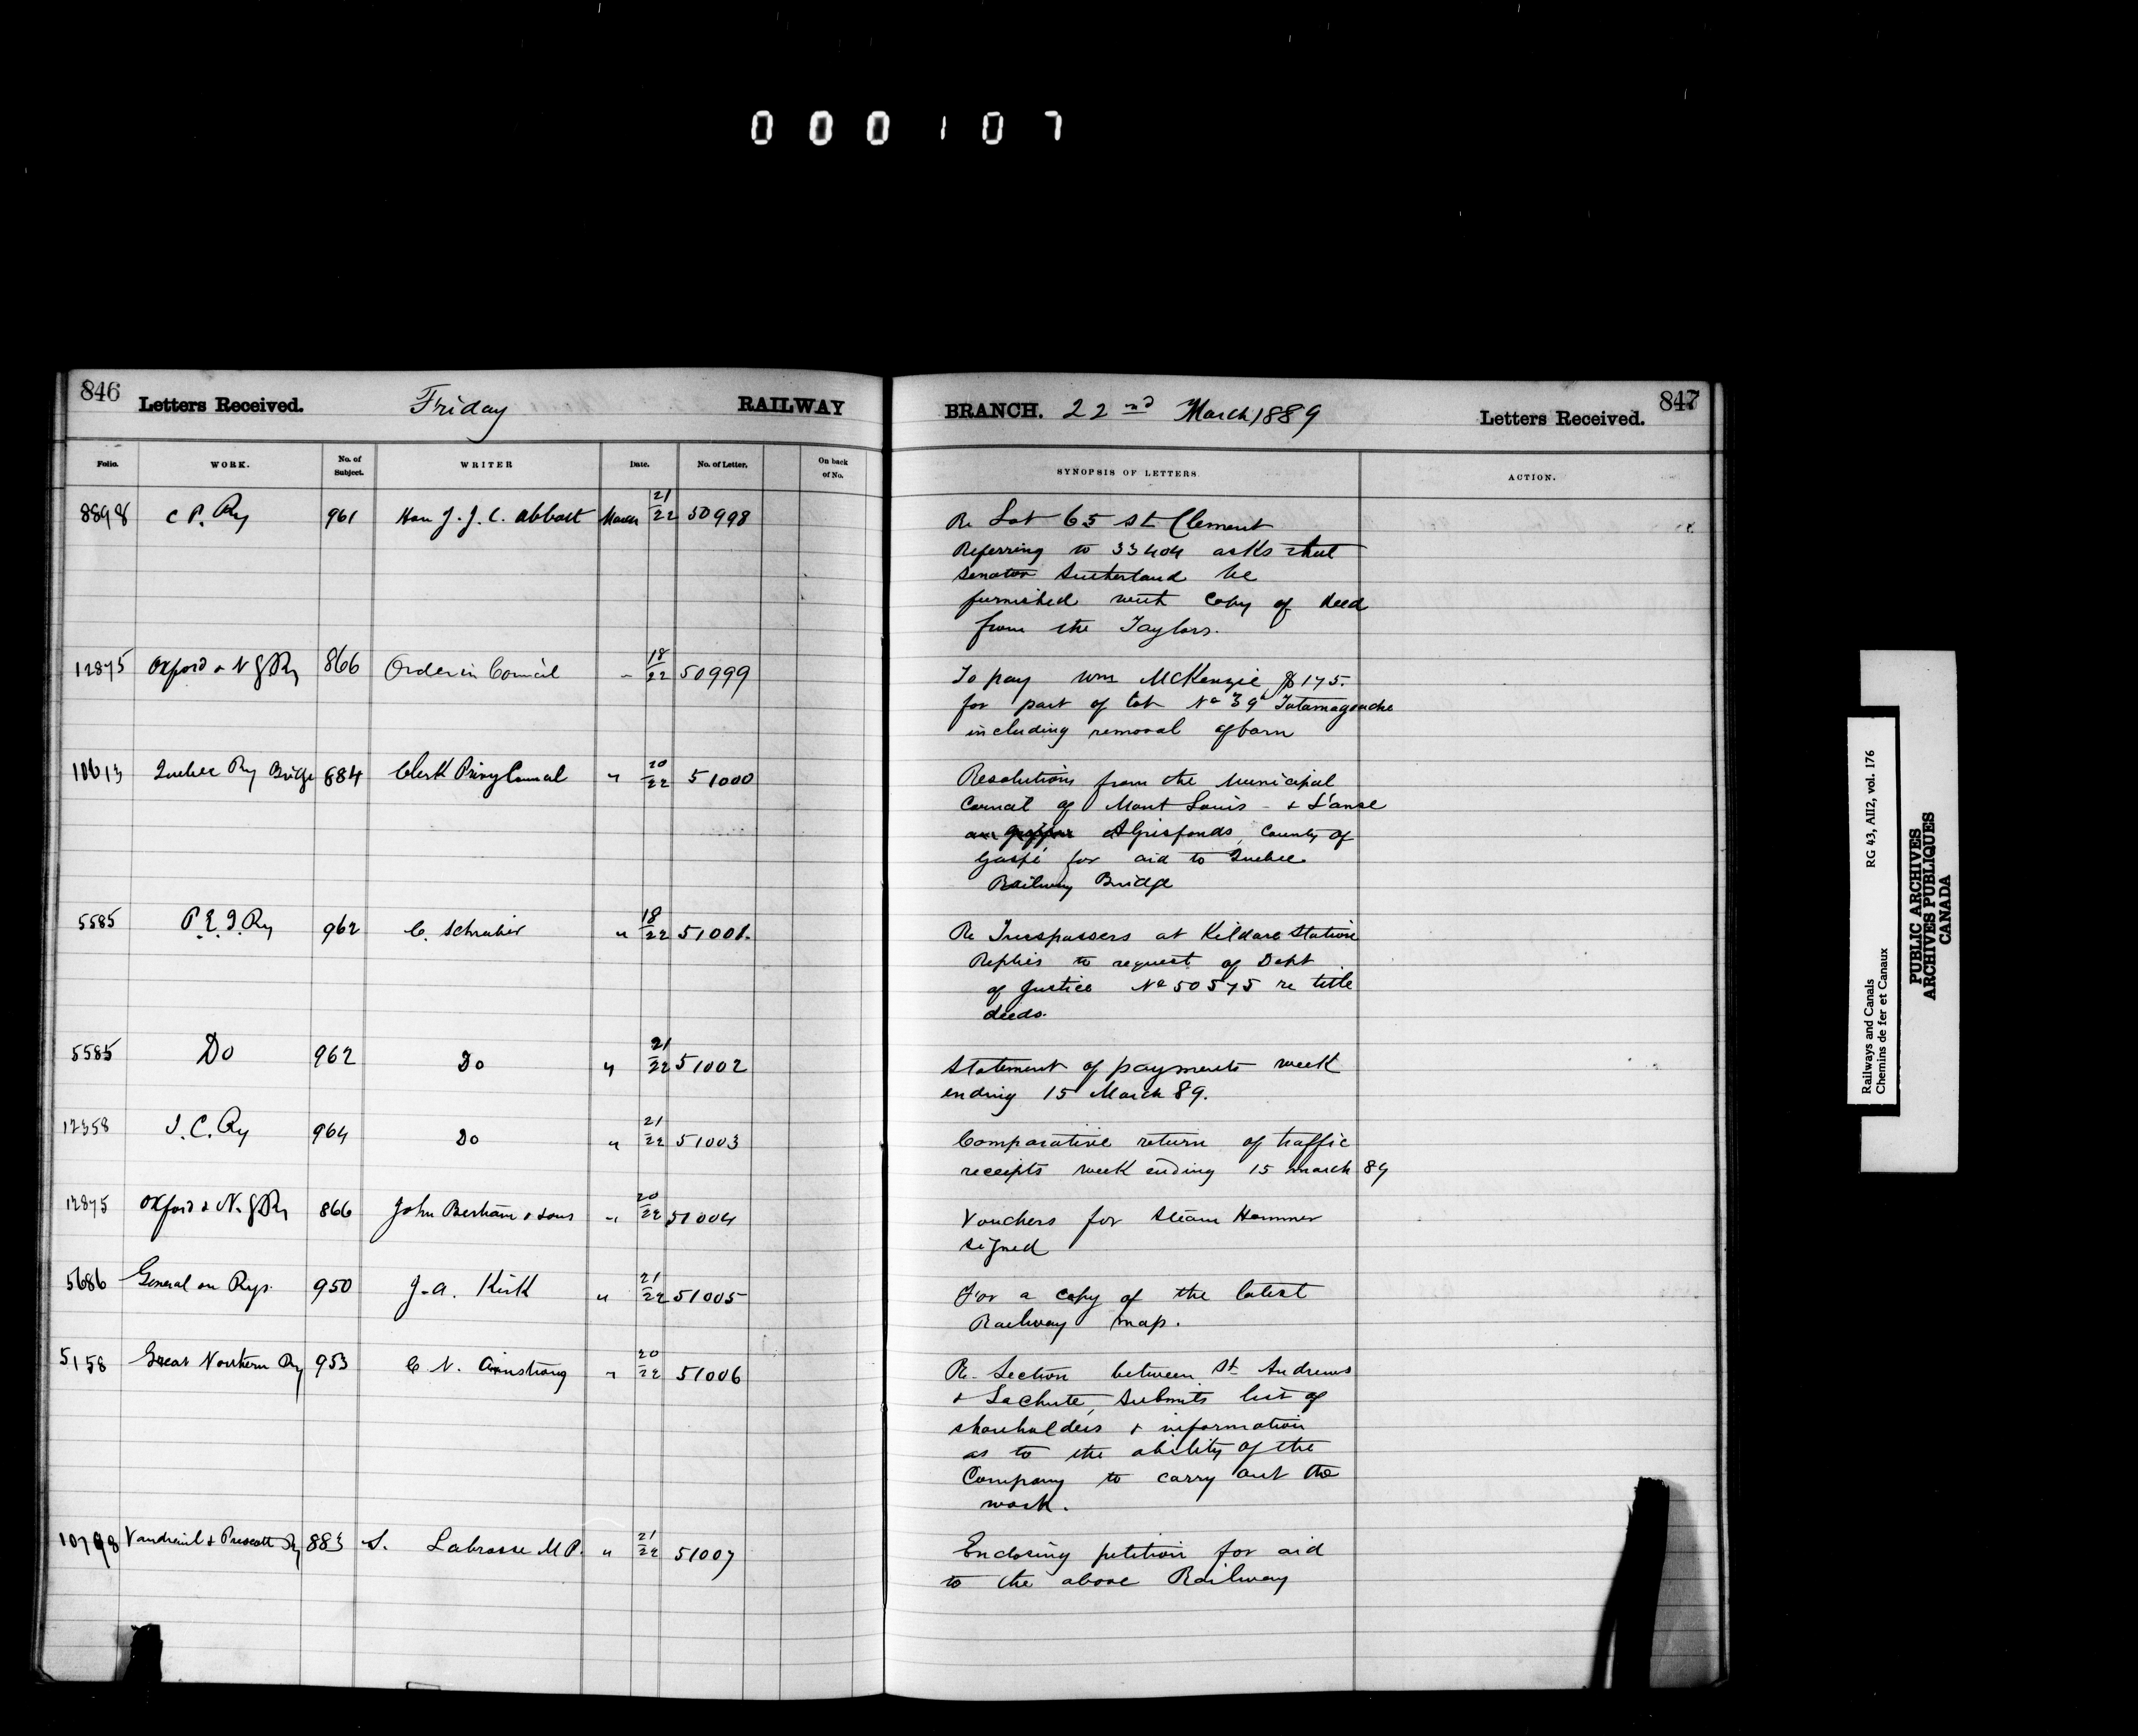 000107
846 Letters Received. Friday RAILWAY BRANCH. 22nd March 1889 Letters Received. 847
Folio. WORK. No. of Subject. WRITER Date. No. of Letter. On back of No. SYNOPSIS OF LETTERS. ACTION.
8898 C P. Ry 961 Hon J. J. C. Abbott March 21/22 50998 Re Lot 65 St Clement
Referring to 33404 asks that
Senator Sutherland be
furnished with copy of deed
from the Taylors.
12875 Oxford & N G Ry 866 Order in Council " 18/22 50999 To pay Wm McKenzie $175.
for part of lot No 39 Tatamagouche
including removal of barn
10613 Quebec Ry Bridge 884 Clerk Privy Council " 20/22 51000 Resolutions from the Municipal
Council of Mont Louis - & L'anse
County of
Gaspé for aid to Quebec
Railway Bridge
5585 P. E. I. Ry 962 C. Schreiber " 18/22 51001. Re Trespassers at Kildare Station
Replies to request of Dept
of Justice No 50575 re title
deeds.
5585 Do 962 Do " 21/22 51002 Statement of payments week
ending 15 March 89.
12358 I. C. Ry 964 Do " 21/22 51003 Comparative return of traffic
receipts week ending 15 March 89
12875 Oxford & N. G Ry 866 John Bertram & Sons " 20/22 51004 Vouchers for Steam Hammer
signed
5686 General on Rys. 950 J. A. Kirk " 21/22 51005 For a copy of the latest
Railway map.
5158 Great Northern Ry 953 C N. Armstrong " 20/22 51006 Re. Section between St Andrews
& Lachute, submits list of
shareholders & information
as to the ability of the
Company to carry out the
work.
10798 Vaudreuil & Prescott Ry 883 S. Labrosse M P. " 21/22 51007 Enclosing petition for aid
to the above Railway
Railways and Canals RG 43, AII2, vol. 176
Chemins de fer et Canaux
PUBLIC ARCHIVES
ARCHIVES PUBLIQUES
CANADA